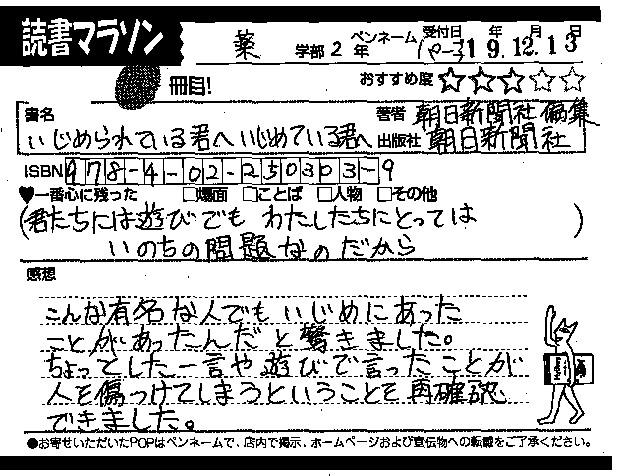 読書マラソン
薬 学部 2 年 ペンネーム ぺーター 受付日 19年12月13日
冊目! おすすめ度 ☆☆☆☆☆
書名 著者 朝日新聞社 編集
いじめられている君へいじめている君へ 出版社 朝日新聞社
ISBN 978-4-02-250303-9
♥一番心に残った □場面 □ことば □人物 □その他
(君たちには遊びでも わたしたちにとっては
いのちの問題なのだから)
感想
こんな有名な人でもいじめにあった
ことがあったんだと驚きました。
ちょっとした一言や遊びで言ったことが
人を傷つけてしまうということを再確認
できました。
●お寄せいただいたPOPはペンネームで、店内で掲示、ホームページおよび宣伝物への転載をご了承ください。